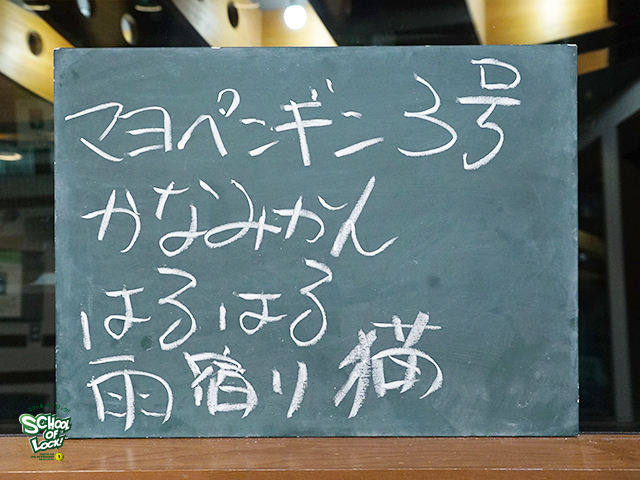 マヨペンギン3号
かなみかん
はるはる
雨宿り猫
SCHOOL
OF
LOCK!